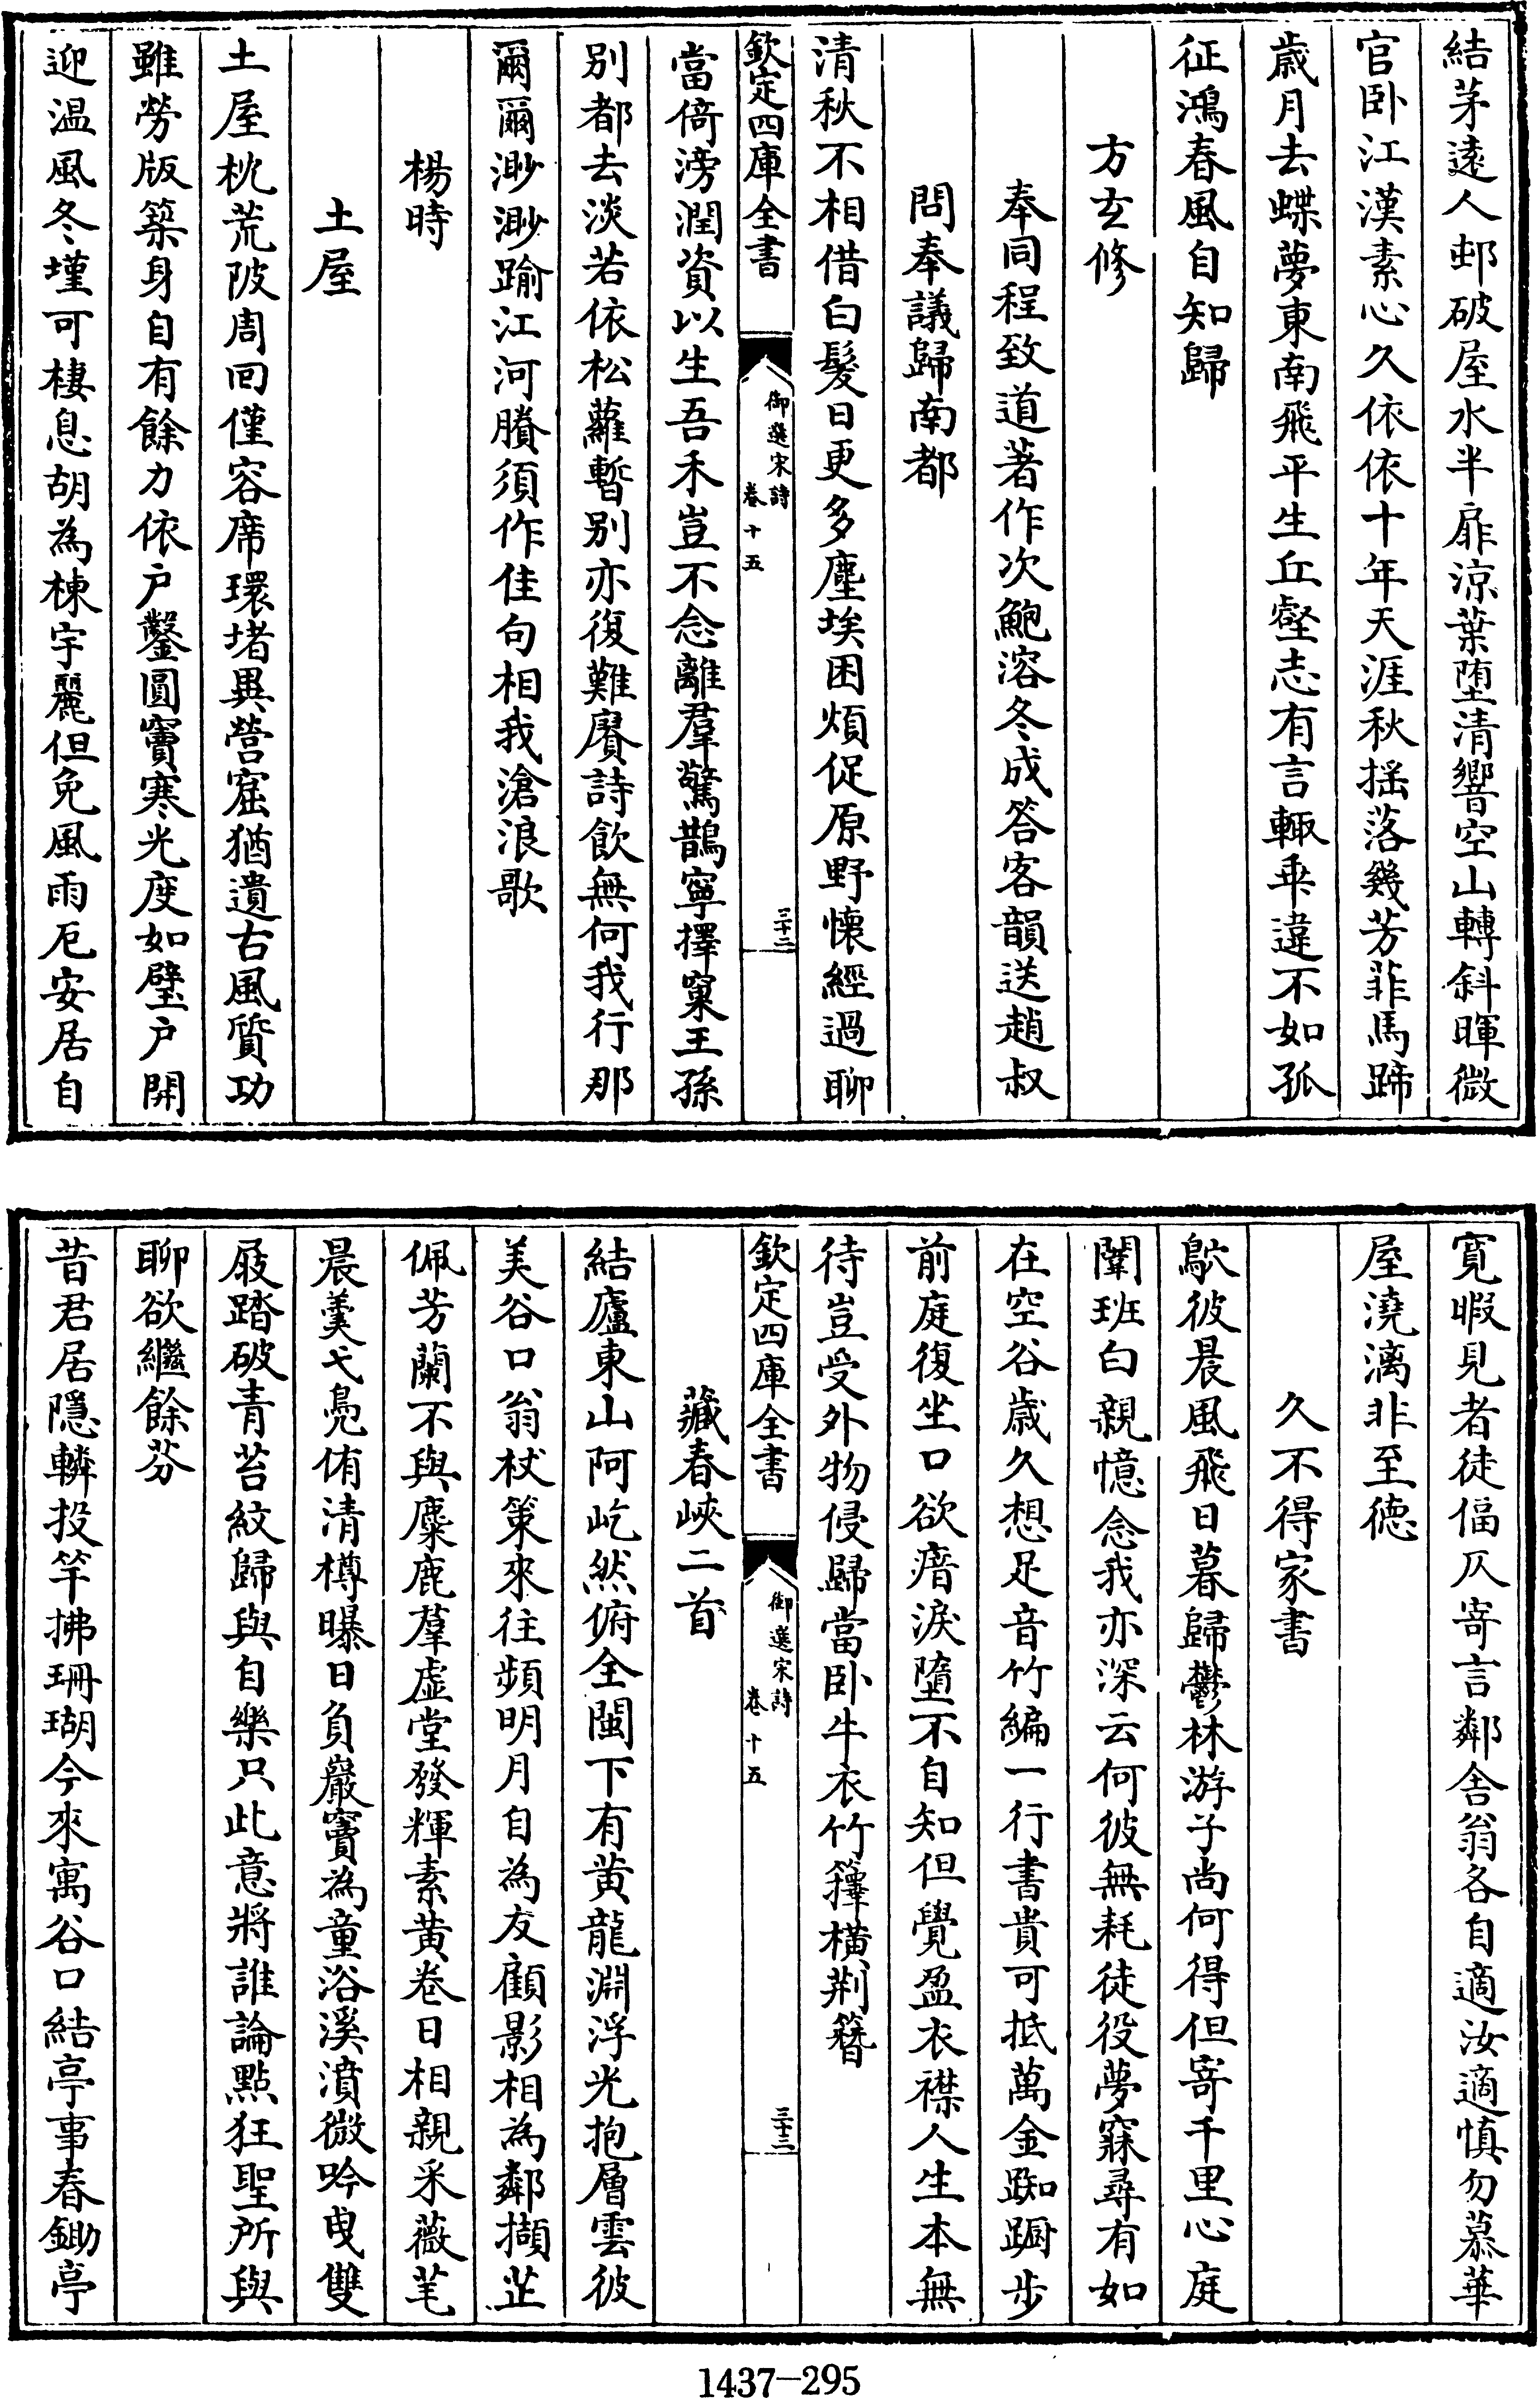 結茅逺人邨破屋水半扉涼葉堕清響空山轉斜暉微
官卧江漢素心久依依十年天涯秋揺落幾芳菲馬蹄
歳月去蝶夢東南飛平生丘壑志有言輙乖違不如孤
征鴻春風自知歸
方玄修
奉同程致道著作次鮑溶冬成答客韻送趙叔
問奉議歸南都
清秋不相借白髮日更多塵埃困煩促原野懷經過聊
欽定四庫全書
御選宋詩
卷十五
三十二
當倚滂潤資以生吾禾豈不念離羣驚鵲寧擇窠王孫
别都去淡若依松蘿暫别亦復難賡詩飲無何我行那
爾爾渺渺踰江河賸須作佳句相我滄浪歌
楊時
土屋
土屋枕荒陂周囘僅容席環堵異營窟猶遺古風質功
雖勞版築身自有餘力依户鑿圓竇寒光度如璧户開
迎温風冬墐可棲息胡為棟宇麗但免風雨厄安居自
寛暇見者徒偪仄寄言鄰舍翁各自適汝適慎勿慕華
屋澆漓非至徳
久不得家書
鴥彼晨風飛日暮歸鬱林游子尚何得但寄千里心庭
闈班白親憶念我亦深云何彼無耗徒役夢寐尋有如
在空谷歳久想足音竹編一行書貴可抵萬金踟蹰步
前庭復坐口欲瘖淚墮不自知但覺盈衣襟人生本無
待豈受外物侵歸當卧牛衣竹籜横荆簪
欽定四庫全書
御選宋詩
卷十五
三十三
藏春峽二首
結廬東山阿屹然俯全閩下有黄龍淵浮光抱層雲彼
美谷口翁杖策來往頻明月自為友顧影相為鄰擷芷
佩芳蘭不與麋鹿羣虚堂發輝素黄卷日相親采薇芼
晨羮弋鳧侑清樽曝日負巖竇為童浴溪濆微吟曳雙
屐踏破青苔紋歸與自樂只此意將誰論點狂聖所與
聊欲繼餘芬
昔君居隱轔投竿拂珊瑚今來寓谷口結亭事春鋤亭
1437—295